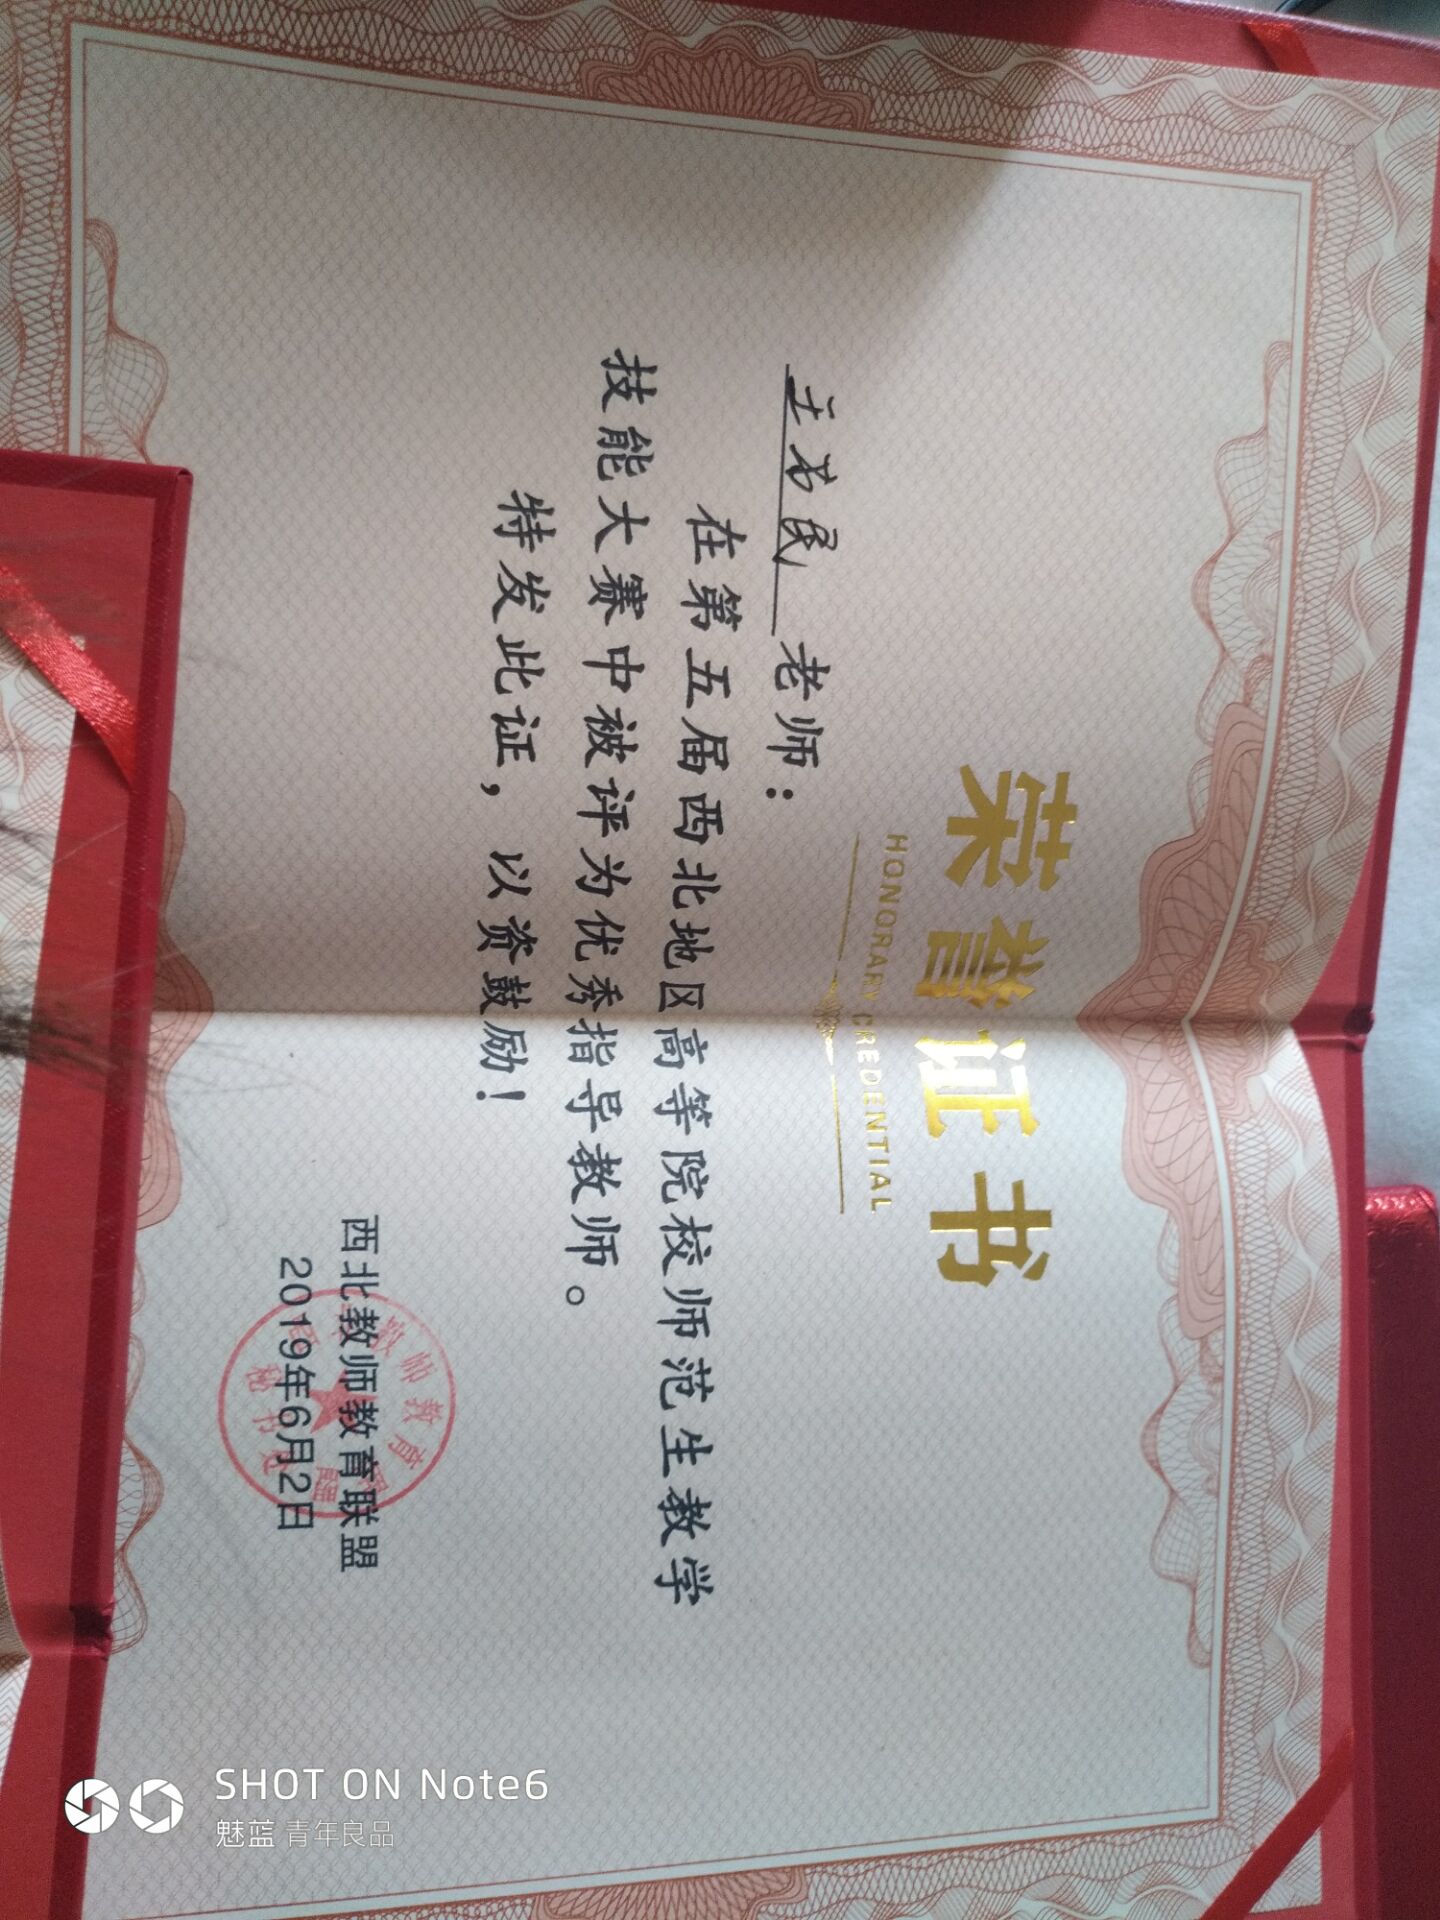 荣誉证书
HONORARY CREDENTIAL
老师：
在第五届西北地区高等院校师范生教学
技能大赛中被评为优秀指导教师。
特发此证，以资鼓励！
西北教师教育联盟
2019年6月2日
SHOT ON Note6
魅蓝 青年良品